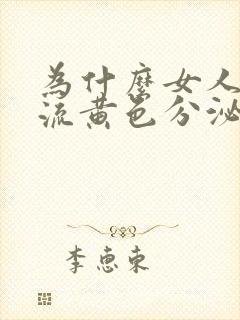 為什麼女人
流黃色分泌
李惠東